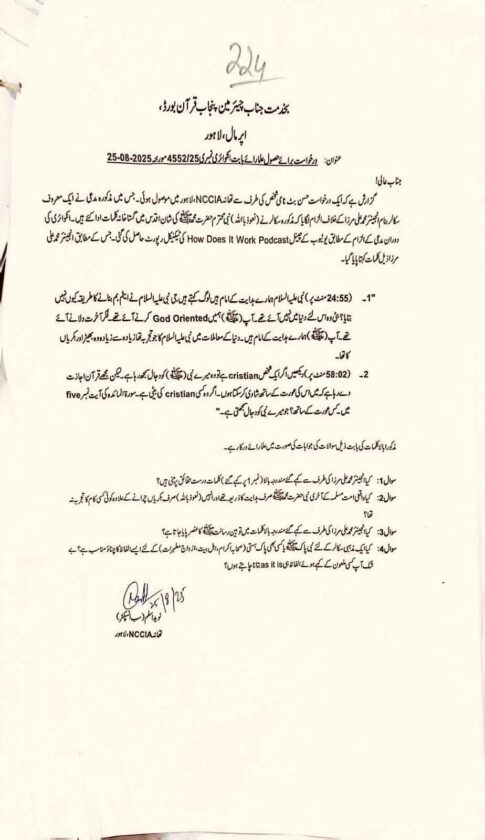 224
بخدمت جناب چیئرمین پنجاب قرآن بورڈ،
اپر مال، لاہور
عنوان: درخواست برائے حصول علما رائے بابت انکوائری نمبری 4552/25 مورخہ 25-08-2025
جناب عالی!
گزارش ہے کہ ایک درخواست حسن بٹ نامی شخص کی طرف سے تھانہ NCCIA، لاہور میں موصول ہوئی۔ جس میں مذکورہ مدعی نے ایک معروف
سکالر بنام انجینئر محمد علی مرزا کے خلاف الزام لگایا کہ مذکورہ سکالر نے (نعوذ باللہ) نبی محترم حضرت محمدﷺ کی شان اقدس میں گستاخانہ کلمات ادا کئے ہیں۔ انکوائری کی
دوران مدعی کے الزام کے مطابق یوٹیوب کے چینل How Does It Work Podcast کی ٹیکنیکل رپورٹ حاصل کی گئی۔ جس کے مطابق انجینئر محمد علی
مرزا ذیل کلمات کہتا پایا گیا۔
"1۔ (24:55 منٹ پر) نبی علیہ السلام ہمارے ہدایت کے امام ہیں لوگ کہتے ہیں جی نبی علیہ السلام نے ایٹم بم بنانے کا طریقہ کیوں نہیں
بتایا؟ بھئی وہ اس لئے دنیا میں نہیں آئے تھے۔ آپ (ﷺ) ہمیں God Oriented کرنے آئے تھے۔ فکر آخرت دلانے آئے
تھے۔ آپ (ﷺ) ہمارے ہدایت کے امام ہیں۔ دنیا کے معاملات میں نبی علیہ السلام کا جو تجربہ تھا زیادہ سے زیادہ وہ بھیڑ اور بکریاں
کا تھا۔
2۔ (58:02 منٹ پر) دیکھیں اگر ایک شخص cristian ہے تو وہ میرے نبی (ﷺ) کو دجال سمجھ رہا ہے۔ لیکن مجھے قرآن اجازت
دے رہا ہے کہ میں اس کی عورت کے ساتھ شادی کر سکتا ہوں۔ اگر وہ کسی cristian کی بیٹی ہے۔ سورۃ المائدہ کی آیت نمبر five
میں۔ کس عورت کے ساتھ؟ جو میرے نبی کو دجال سمجھتی ہے۔"
مذکورہ بالا کلمات کی بابت ذیل سوالات کی جوابات کی صورت میں علما رائے درکار ہے۔
سوال 1: کیا انجینئر محمد علی مرزا کی طرف سے کہے گئے مندرجہ بالا (نمبر 1 پر کہے گئے) کلمات درست حقائق پر مبنی ہیں؟
سوال 2: کیا واقعی امت مسلمہ کے آخری نبی حضرت محمدﷺ صرف ہدایت کا ذریعہ تھے اور انہیں (نعوذ باللہ) صرف بکریاں چرانے کے علاوہ کوئی کسی کام کا تجربہ نہ
تھا؟
سوال 3: کیا انجینئر محمد علی مرزا کی طرف سے کہے گئے مندرجہ بالا کلمات میں توہین رسالتﷺ کا عنصر پایا جاتا ہے؟
سوال 4: کیا ایک مذہبی سکالر کے لئے نبی پاکﷺ یا کسی بھی پاک ہستی (صحابہ اکرام، اہل بیت، ازواج مطہرات) کے لئے ایسے الفاظ کا چناؤ مناسب ہے؟ بے
شک آپ کسی ملعون کے کہے ہوئے الفاظ ہی as it is بتانا چاہتے ہوں؟
25/8/25
نوید اسلم (سب انسپکٹر)
تھانہ NCCIA، لاہور